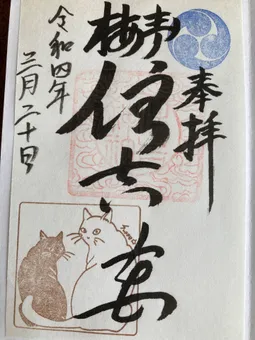 奉拝
青梅
住吉
令和四年
三月二十日